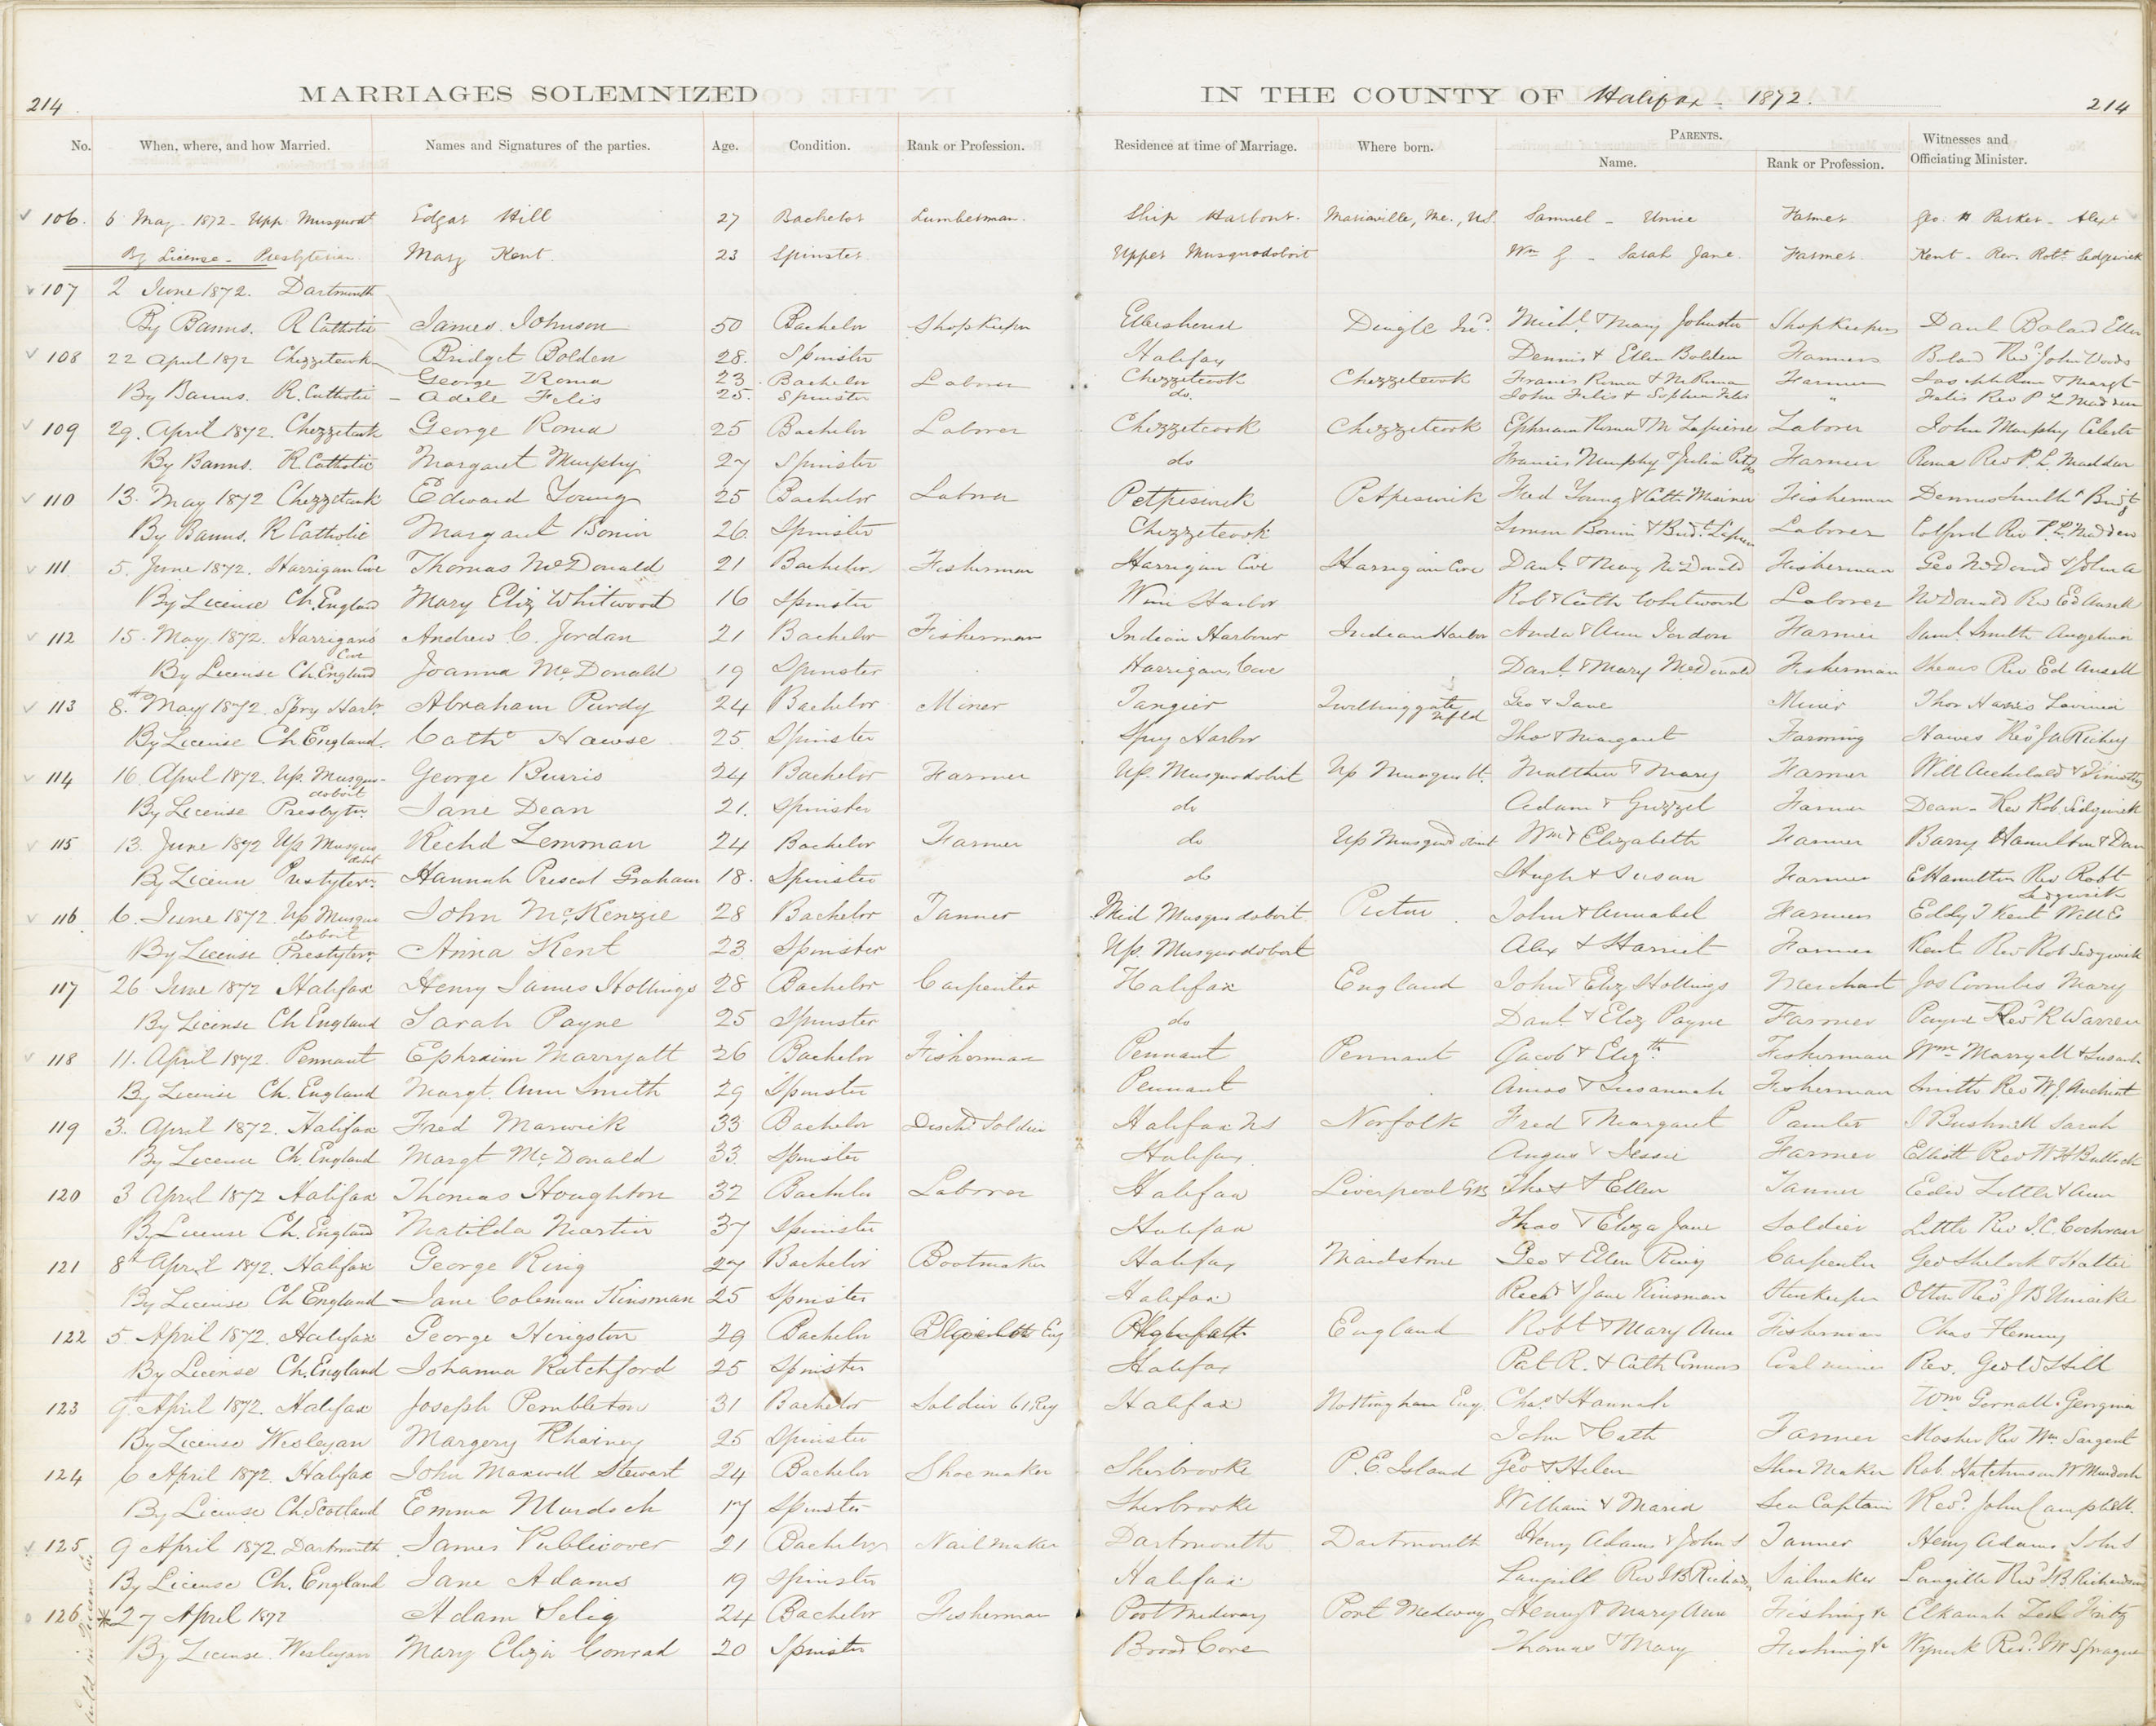 214
MARRIAGES SOLEMNIZED IN THE COUNTY OF Halifax - 1872.
214
No. When, where, and how Married. Names and Signatures of the parties. Age. Condition. Rank or Profession. Residence at time of Marriage. Where born. PARENTS. Name. Rank or Profession. Witnesses and Officiating Minister.
106. 6 May 1872 - Upp Musquodt Edgar Hill 27 Bachelor Lumberman. Ship Harbour. Mariaville, Me., U.S. Samuel - Unice Farmer Geo. H Parker - Alexr
By License - Presbyterian. Mary Kent 23 Spinster Upper Musquodoboit Wm G. - Sarah Jane. Farmer. Kent - Rev. Robt Sedgwick
107 2 June 1872. Dartmouth
By Banns. R Catholic James Johnson 50 Bachelor Shop Keeper Dingle Ire. Michl. & Mary Johnston Shop Keeper Danl Boland Ellen
108 22 April 1872 Chezzetcook Bridget Bolden 28. Spinster Halifax Dennis & Ellen Bolden Farmers Boland Revd John Woods
George Roma 23. Bachelor Laborer Chezzetcook Chezzetcook Francis Roma & Farmer & Margt
By Banns. R. Catholic - Adele Felis 25. Spinster do. John Felis & Sophia Felis " Felis Rev P L Madden
109 29. April 1872. Chezzetcook George Roma 25 Bachelor Laborer Chezzetcook Chezzetcook Ephriam Roma & M Lapierre Laborer John Murphy Celeste
By Banns. R Catholic Margaret Murphy 27 Spinster do Francis Murphy & Julia Farmer Roma Rev P. L. Madden
110 13. May 1872 Chezzetcook Edward Young 25 Bachelor Laborer Petpeswick Petpeswick Fred Young & Cath Fisherman Dennis Smith & Bridgt
By Banns. R Catholic Margaret Bonin 26. Spinster Chezzetcook Bonin & Laborer Rev P. L. Madden
111 5. June 1872. Harrigan Cove Thomas McDonald 21 Bachelor Fisherman Harrigan Cove Harrigan Cove Danl. & Mary McDonald Fisherman Geo McDonald & John A
By License Ch. England Mary Eliz Whitwood 16 Spinster Harbor Rob & Cath Whitwood Laborer McDonald Rev Ed Ansell
112 15. May 1872. Harrigan's Cove Andrew C. Jordan 21 Bachelor Fisherman Indian Harbour Indian Harbor & Ann Jordon Farmer Saml. Smith Angelina
By License Ch. England Joanna McDonald 19 Spinster Harrigan Cove Danl. & Mary McDonald Fisherman Shears Rev Ed Ansell
113 8th May 1872. Spry Harbr Abraham Purdy 24 Bachelor Miner Tangier Twillinggate Nfld Geo & Jane Miner Thos Hawes Lavinia
By License Ch. England. Cathe Hawse 25 Spinster Spry Harbor Thos & Margaret Farming Hawes Revd J A Richey
114 16. April 1872. Up. Musquodoboit George Burris 24 Bachelor Farmer Up. Musquodoboit Up Musquo bt. Matthew & Mary Farmer Will Archibald & Timothy
By License Presbytr. Jane Dean 21. Spinster do Adam & Grizzel Farmer Dean - Rev Rob Sidgwick
115 13. June 1872 Up Musquodobt Richd Lemman 24 Bachelor Farmer do Up Musquodoboit Wm & Elizabeth Farmer Barry Hamilton & Dan
By License Presbytern. Hannah Prescot Graham 18. Spinster do Hugh & Susan Farmer E Hamilton Rev Robt Sedgwick
116 6. June 1872. Up Musquodoboit John McKenzie 28 Bachelor Tanner Mid Musquodoboit Pictou John & Annabel Farmer Eddy T Kent Will E
By License Presbytern. Anna Kent 23. Spinster Up. Musquodoboit Alex & Harriet Farmer Kent Rev Rob Sedgwick
117 26 June 1872 Halifax Henry James Hollings 28 Bachelor Carpenter Halifax England John & Eliz Hollings Merchant Jos Coombes Mary
By License Ch England Sarah Payne 25 Spinster do Danl. & Eliz Payne Farmer Payne Revd R Warren
118 11. April 1872. Pennant Ephraim Marryatt 26 Bachelor Fisherman Pennant Pennant Jacob & Elizth Fisherman Wm Marryatt & Susanh
By License Ch. England Margt. Ann Smith 29 Spinster Pennant Amos & Susannah Fisherman Smith Rev W. J. Ancient
119 3. April 1872. Halifax Fred Marwick 33 Bachelor Dischd Soldier Halifax NS Norfolk Fred & Margaret Painter S Bushnell Sarah
By License Ch. England Margt McDonald 33. Spinster Halifax Angus & Jessie Farmer Elliott Rev W H Bullock
120 3 April 1872 Halifax Thomas Houghton 32 Bachelor Laborer Halifax Liverpool GB Thos & Ellen Tanner Edw Little & Ann
By License Ch. England Matilda Martin 37 Spinster Halifax Thos & Eliza Jane Soldier Little Rev J. C. Cochran
121 8th April 1872. Halifax George Ring 27 Bachelor Bootmaker Halifax Maidstone Geo & Ellen Ring Carpenter Geo Sherlock & Hattie
By License Ch England Jane Coleman Kinsman 25 Spinster Halifax Richd & Jane Kinsman Otton Revd J B Uniacke
122 5. April 1872. Halifax George Hingston 29 Bachelor England Robt & Mary Ann Fisherman Chas Fleming
By License Ch. England Johanna Ratchford 25 Spinster Halifax Pat R. & Cath Connors Coal miner Rev. Geo W Hill
123 9. April 1872. Halifax Joseph Pembleton 31 Bachelor Soldier 61 Reg Halifax Nottingham Eng. Chas & Hannah Wm Gornall Georgina
By License Wesleyan Margery Rhainey 25 Spinster John & Cath Farmer Mosher Rev Wm. Sargent
124 6 April 1872. Halifax John Maxwell Stewart 24 Bachelor Shoemaker Sherbrooke P. E. Island Geo & Helen Shoe Maker Rob. Hutchinson W Murdoch
By License Ch Scotland Emma Murdoch 17 Spinster Sherbrooke William & Maria Sea Captain Revd. John Campbell.
125 9 April 1872. Dartmouth James Publicover 21 Bachelor Nail maker Dartmouth Dartmouth Henry Adams & John S Tanner Henry Adams John S
By License Ch. England Jane Adams 19 Spinster Halifax Langill Rev J B Richardson Sailmaker Langille Revd J. B. Richardson
126 * 27 April 1872 Adam Selig 24 Bachelor Fisherman Port Medway Port Medway Henry & Mary Ann Fishing &c Elkanah
By License. Wesleyan Mary Eliza Conrad 20 Spinster Broad Cove Thomas & Mary Fishing &c Revd. Sprague